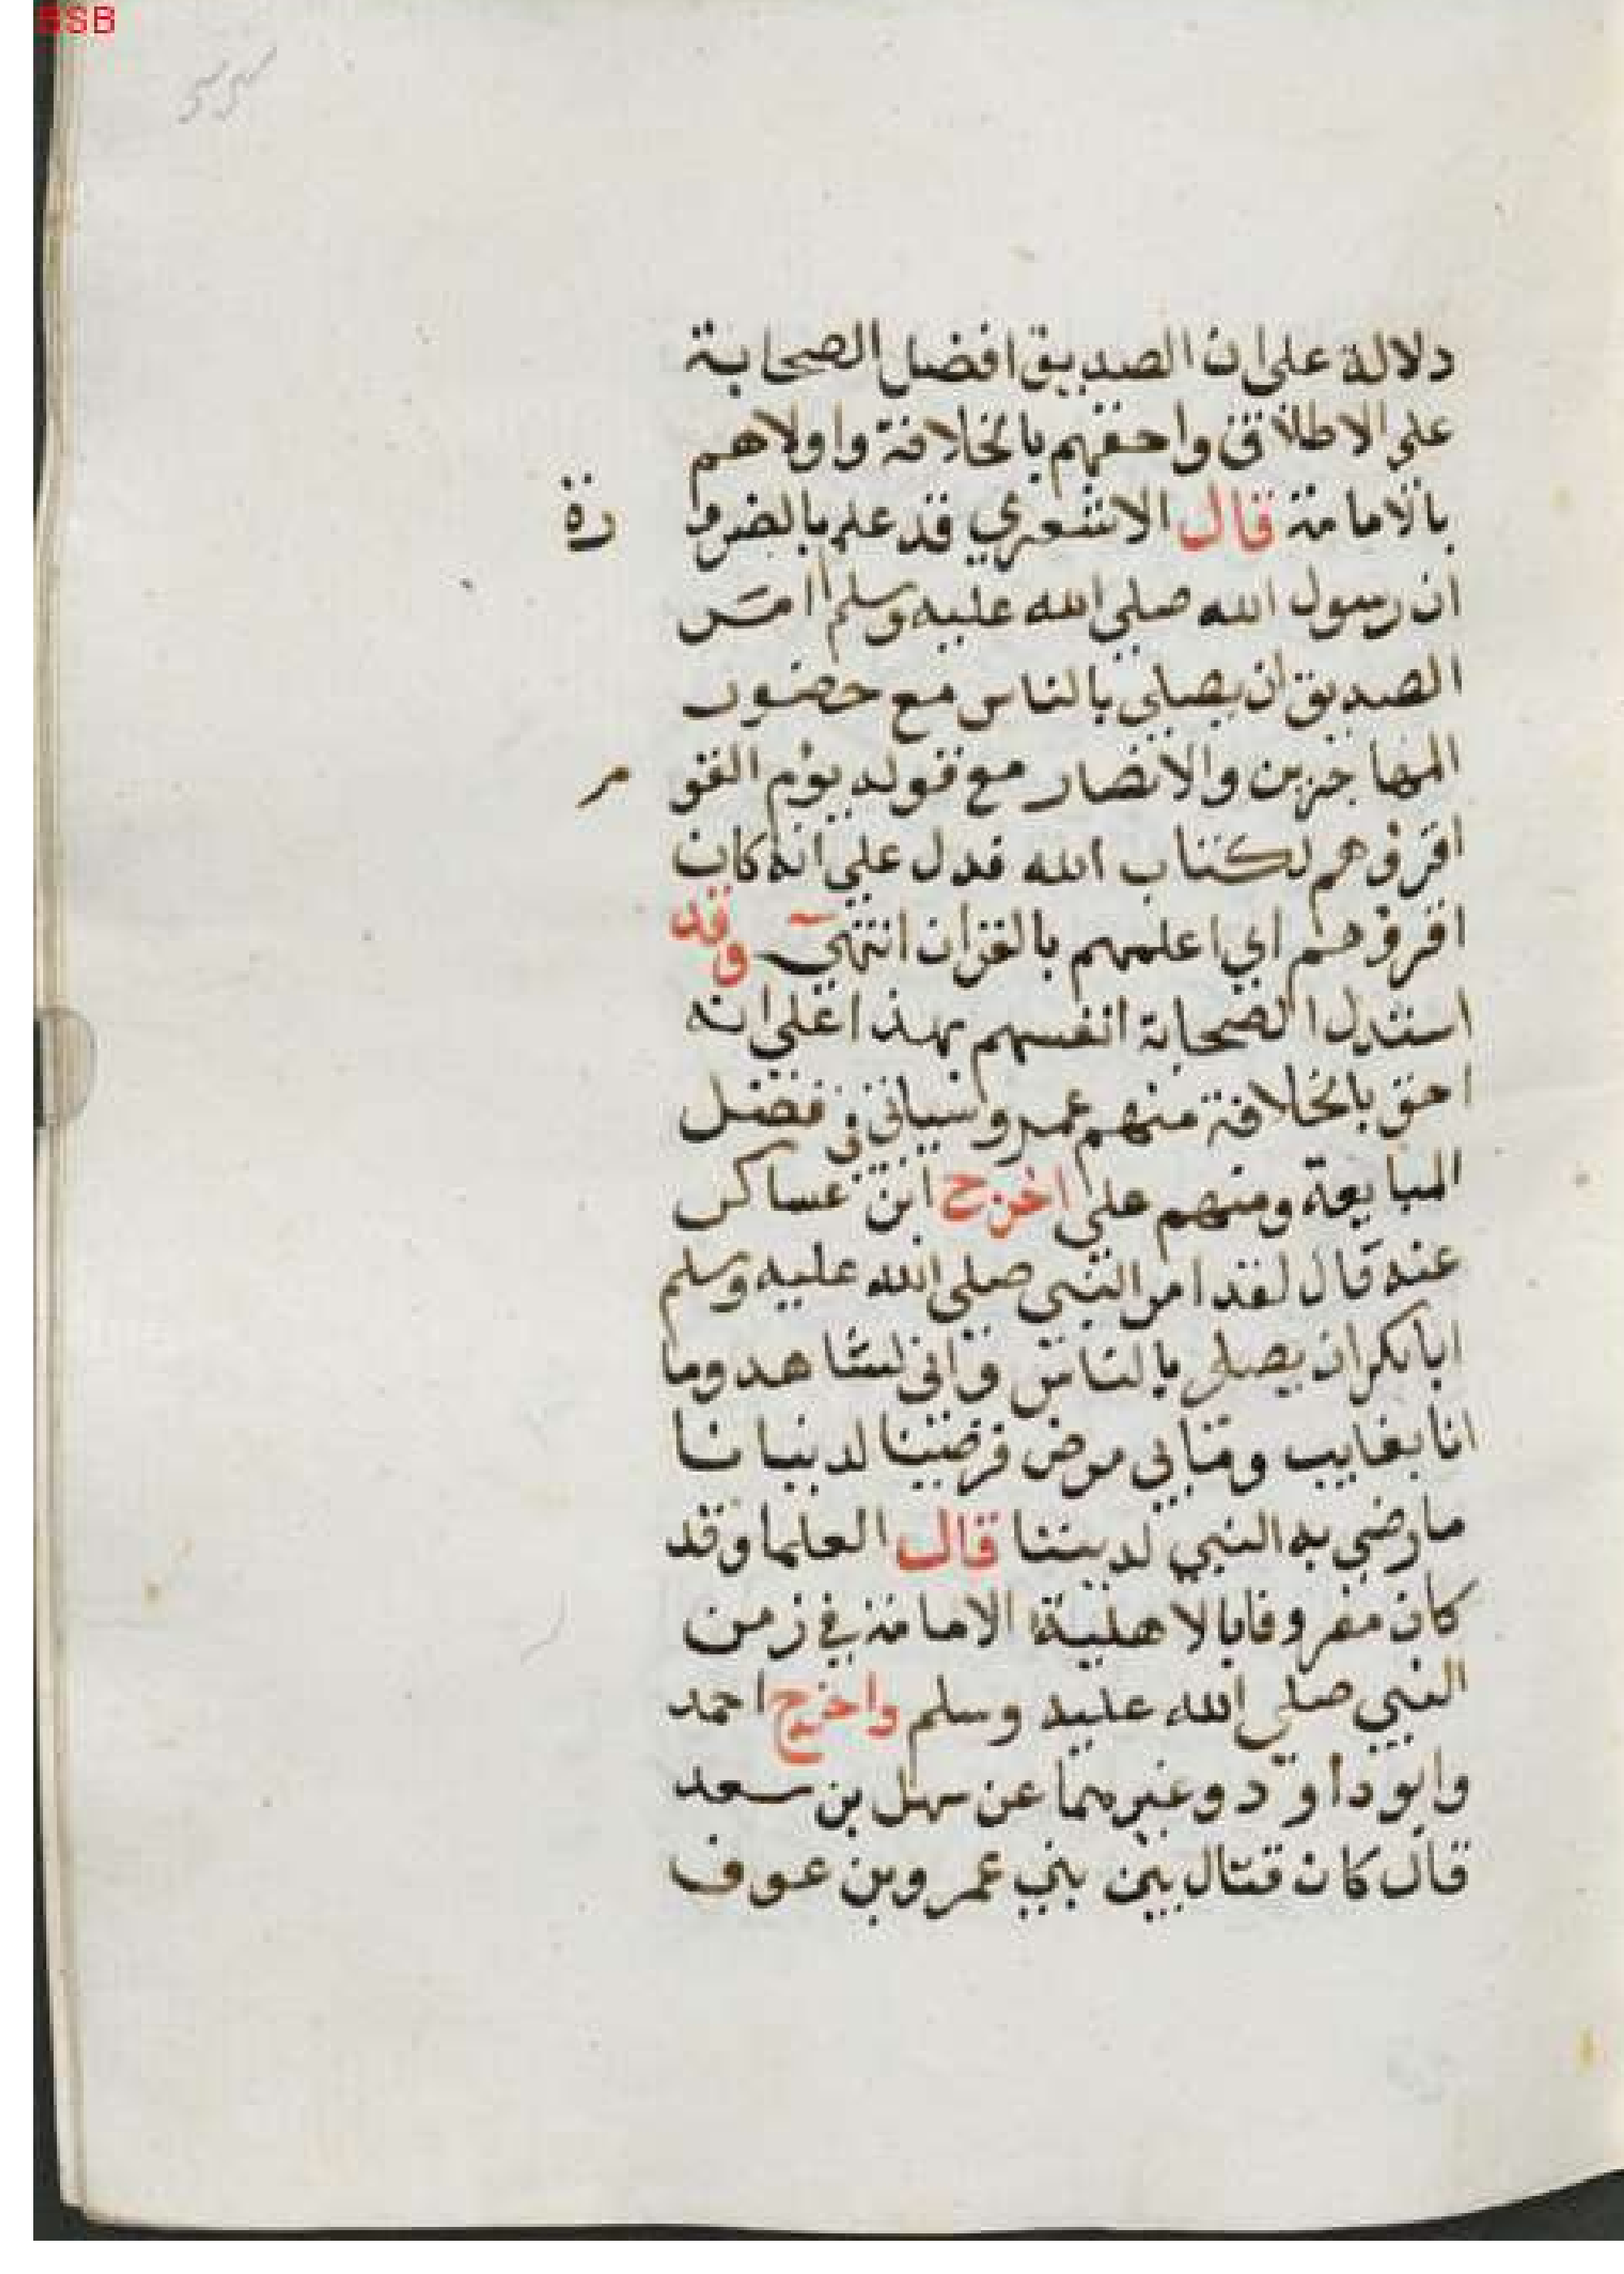 BSB
دلالة على ان الصديق افضل الصحابة
على الاطلاق واحقهم بالخلافة واولاهم
بالامامة قال الاشعري قد علم بالضرو رة
ان رسول الله صلى الله عليه وسلم امر
الصديق ان يصلي بالناس مع حضور
المهاجرين والانصار مع قوله يؤم القو م
اقروهم لكتاب الله فدل على انه كان
اقروهم اي اعلمهم بالقران انتهى وقد
استدل الصحابة انفسهم بهذا على انه
احق بالخلافة منهم عمر وسياتي في فضل
المبايعة ومنهم علي اخرج ابن عساكر
عنه قال لقد امر النبي صلى الله عليه وسلم
ابا بكر ان يصلي بالناس واني لشاهد وما
انا بغايب وما بي مرض فرضينا لدنيانا
ما رضي به النبي لديننا قال العلما وقد
كان معروفا بالاهلية الامامة في زمن
النبي صلى الله عليه وسلم واخرج احمد
وابو داود وغيرهما عن سهل بن سعد
قال كان قتال بين بني عمرو بن عوف